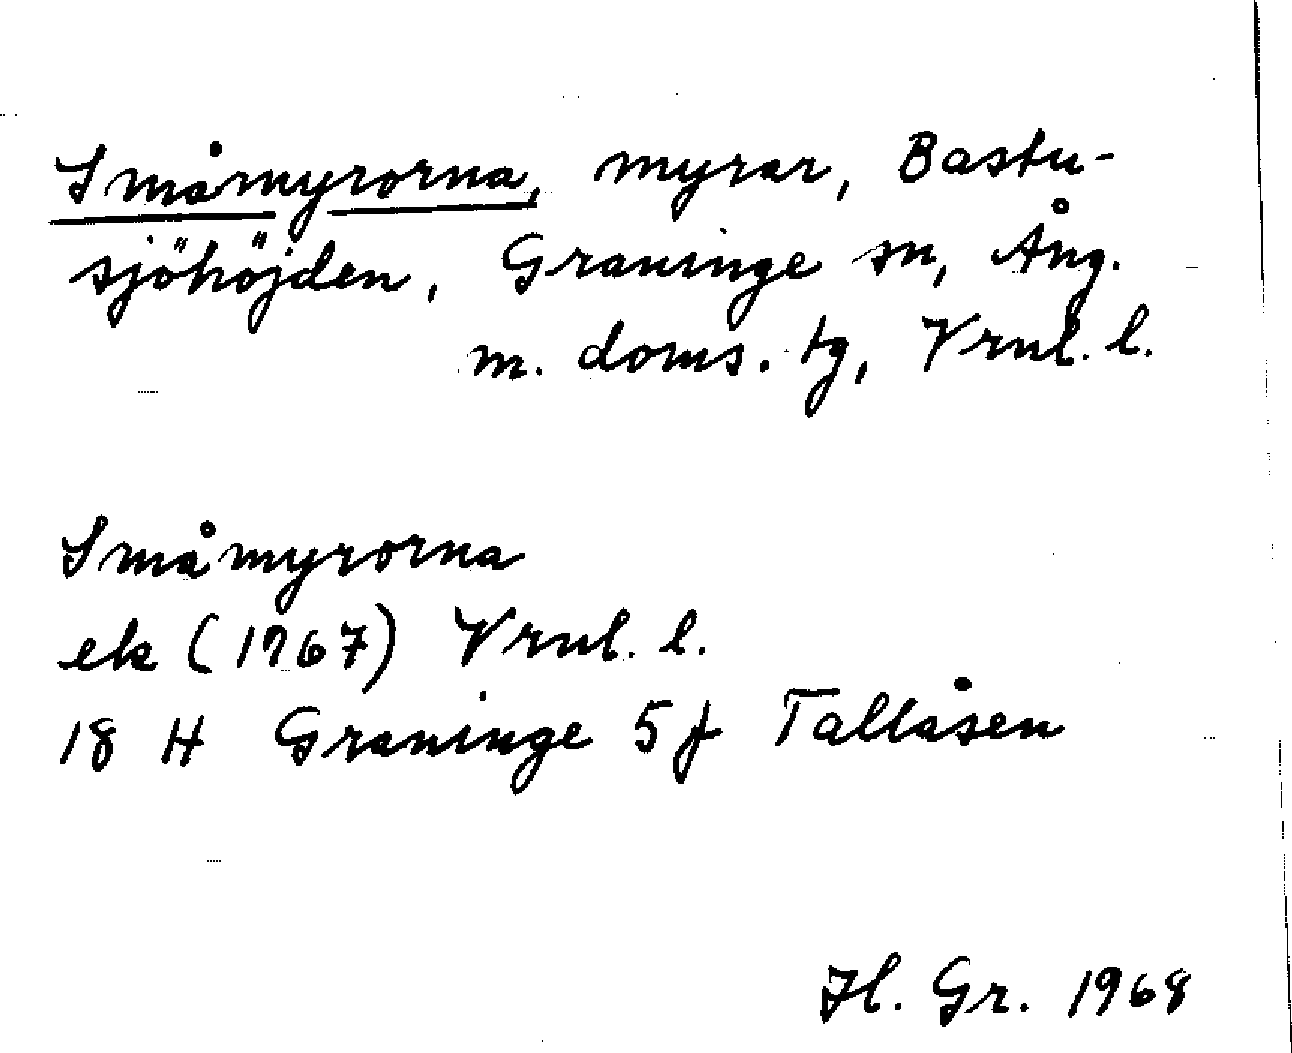 Småmyrorna, myrar, Bastu-
sjöhöjden, Graninge sn, Ång.
m. doms. tg, Vrnl. l.
Småmyrorna
ek (1967) Vrnl. l.
18 H Graninge 5 f Tallåsen
Hl. Gr. 1968